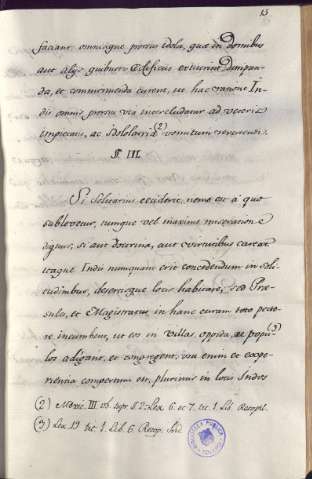 13
faciant, omniaque prorsus idola, quæ in Domibus
aut alijs quibusvis Ædificijs extiterint disrumpan-
da, et comminuenda curent, ut hac ratione In-
dis omnis prorsus via intercludatur ad veteris
impietatis, ac Idololatriæ (2) vomitum revertendi.
§. III.
Si solitarius ceciderit, nemo est à quo
sublevetur, tumque vel maxime miseratione
dignus, si aut doctrina, aut virtutibus careat
itaque Indis nunquam erit concedendum in soli-
tudinibus, desertisque locis habitare, sed Præ-
sules, et Magistratus in hanc curam toto pecto-
re incumbent, ut eos in Villas, oppida, ac popul.
adigant, et congregent, usu enim et expe-
rientia compertum est, plurimis in locis Indos
(2) Mexic. III. ub. supr. §. 2. Lex 6. et 7. tit. 1. Lib. Recopil.
(3) Lex 19 tit. 1. Lib. 6. Recop. Ind.
BIBLIOTECA PUBLICA
TOLEDO